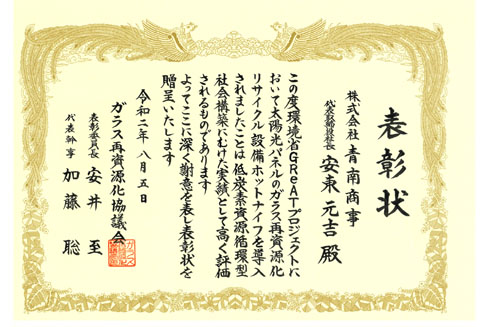 表彰状
株式会社青南商事
代表取締役社長 安東元吉殿
この度環境省GReATプロジェクトに
おいて太陽光パネルのガラス再資源化
リサイクル設備ホットナイフを導入
されましたことは低炭素資源循環型
社会構築にむけた実績として高く評価
されるものであります
よってここに深く謝意を表し表彰状を
贈呈いたします
令和二年八月五日
ガラス再資源化協議会
表彰委員長 安井至
代表幹事 加藤聡